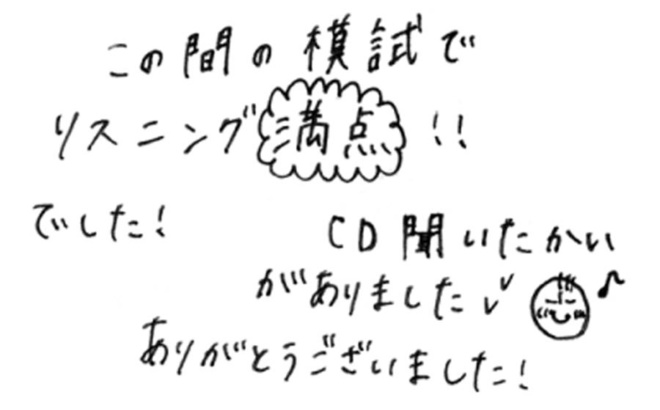 この間の模試で
リスニング満点!!
でした!
CD聞いたかい
がありました
ありがとうございました!